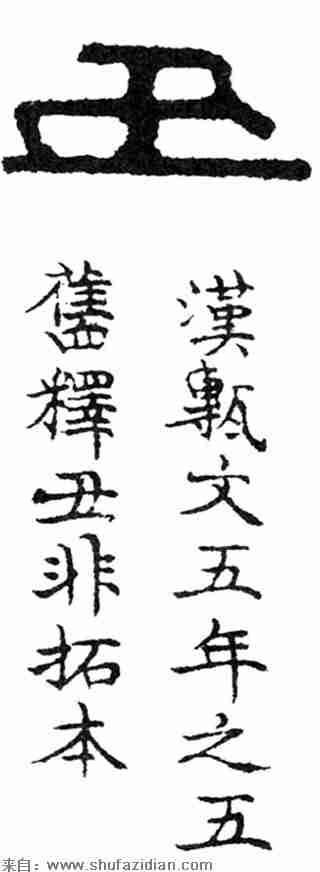 五
漢甎文五年之五
舊釋丑非拓本
来自：www.shufazidian.com